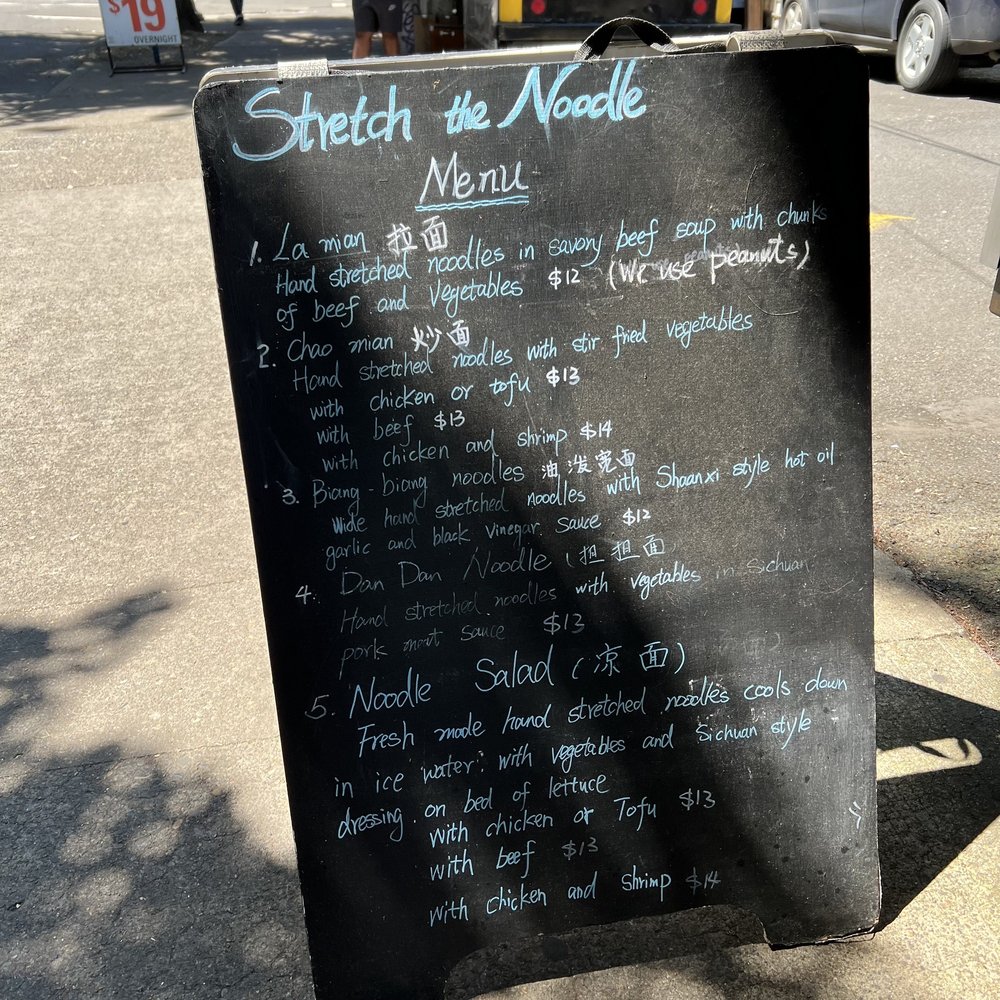 $19
OVERNIGHT
Stretch the Noodle
Menu
1. La mian 拉面
Hand stretched noodles in savory beef soup with chunks
of beef and vegetables $12 (We use peanuts)
2. Chao mian 炒面
Hand stretched noodles with stir fried vegetables
with chicken or tofu $13
with beef $13
with chicken and shrimp $14
3. Biang-biang noodles 油泼宽面
Wide hand stretched noodles with Shaanxi style hot oil
garlic and black vinegar sauce $12
4. Dan Dan Noodle (担担面
Hand stretched noodles with vegetables in Sichuan
pork meat sauce $13
5. Noodle Salad (凉面)
Fresh made hand stretched noodles cools down
in ice water. with vegetables and Sichuan style
dressing. on bed of lettuce
with chicken or Tofu $13
with beef $13
with chicken and shrimp $14